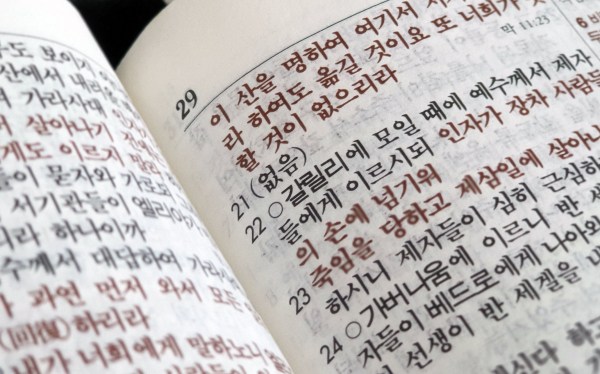 도 보이지
산에서 내려올
가라사대
살아나기
게도 이르지 말라
들이 묻자와 가로되
서기관들이 엘리야가
리라 하나이까
수께서 대답하여 가라사
과연 먼저 와서 모든
(回復)하리라
내가 너희에게 말하노니
29
이 산을 명하여 여기서
라 하여도 옮길 것이요 또 너희가
막 11:23
할 것이 없으리라
21 (없음)
22 ○갈릴리에 모일 때에 예수께서 제자
들에게 이르시되 인자가 장차 사람들
의 손에 넘기워
죽임을 당하고 제삼일에 살아나
23 하시니 제자들이 심히 근심하
24 ○가버나움에 이르니 반 세
자들이 베드로에게 나아와
선생이 반 세겔을 내
6